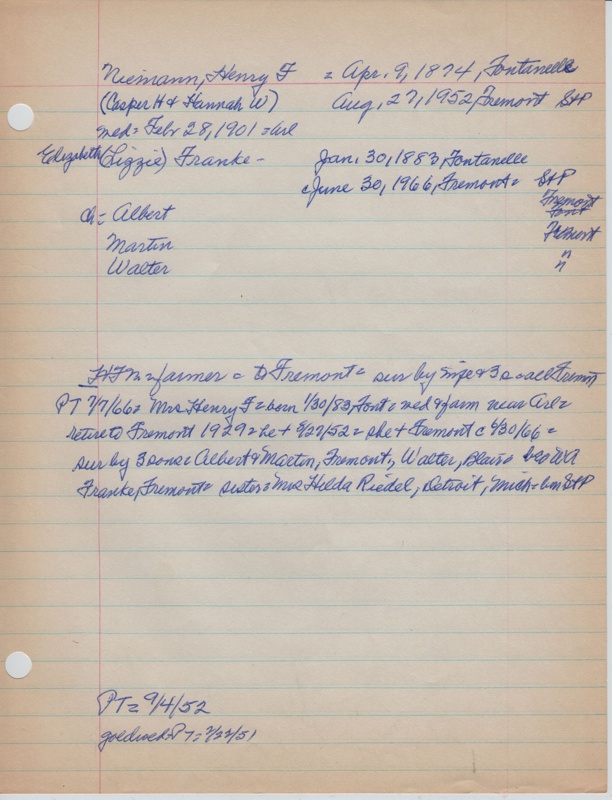 Niemann, Henry F = Apr. 9, 1874, Fontanelle
(Casper H & Hannah W) Aug, 27, 1952, Fremont StP
med= Febr 28, 1901 = Arl
Elizabeth (Lizzie) Franke - Jan. 30, 1883, Fontanelle
c June 30, 1966, Fremont = StP
ch = Albert Fremont
Font
Martin Fremont
Walter "
HFN = farmer = to Fremont = sur by wife & 3 s = all Fremont
PT 7/7/66 = Mrs Henry F = born 1/30/83, Font = med & farm near Arl =
retire to Fremont 1929 = he + 8/27/52 = she + Fremont c 6/30/66 =
sur by 3 sons = Albert & Martin, Fremont, Walter, Blair = bro WA
Franke, Fremont = sister = Mrs Hilda Riedel, Detroit, Mich = bm StP
PT = 9/4/52
goldwed = PT = 2/22/51